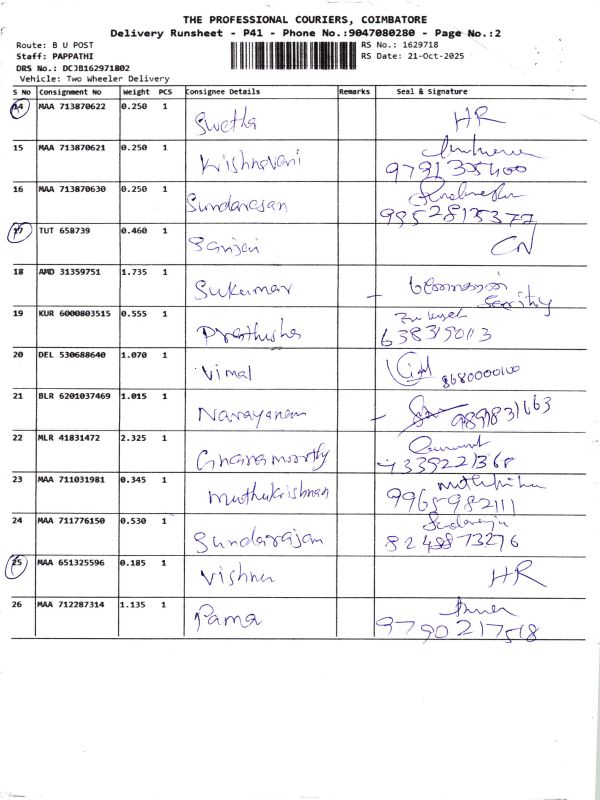 THE PROFESSIONAL COURIERS, COIMBATORE
Delivery Runsheet - P41 - Phone No.:9047080280 - Page No.:2
Route: B U POST
RS No.: 1629718
Staff: PAPPATHI
RS Date: 21-Oct-2025
DRS No.: DCJB162971802
Vehicle: Two Wheeler Delivery
S No Consignment No Weight PCS Consignee Details Remarks Seal & Signature
14 MAA 713870622 0.250 1 Swetha HR
15 MAA 713870621 0.250 1 Krishnaveni
9791335400
16 MAA 713870630 0.250 1 Sundarasan
9952815377
17 TUT 658739 0.460 1 Sanjai CN
18 AMD 31359751 1.735 1 Sukumar
Security
19 KUR 6000803515 0.555 1 Prathusha
6383190113
20 DEL 530688640 1.070 1 Vimal
8680000100
21 BLR 6201037469 1.015 1 Narayanan
9891831663
22 MLR 41831472 2.325 1 Gnanamoorthy
9339221368
23 MAA 711031981 0.345 1 Muthukrishnan
9965982111
24 MAA 711776150 0.530 1 Sundarajan
8248873276
25 MAA 651325596 0.185 1 Vishnu HR
26 MAA 712287314 1.135 1 Rama
9790217518